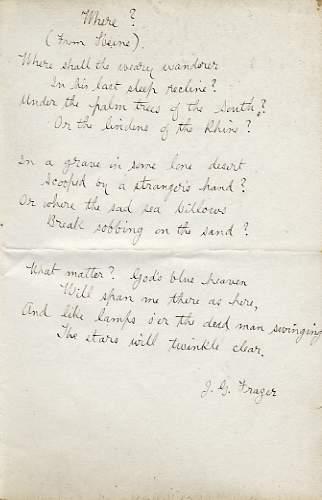 Where?
(From Heine).
Where shall the weary wanderer
In his last sleep recline?
Under the palm trees of the south?
Or the lindens of the Rhine?
In a grave in some lone desert
Scooped by a stranger's hand?
Or where the sad sea billows
Break sobbing on the sand?
What matter? God's blue heaven
Will span me there as here,
And like lamps o'er the dead man swinging
The stars will twinkle clear.
J. G. Frazer